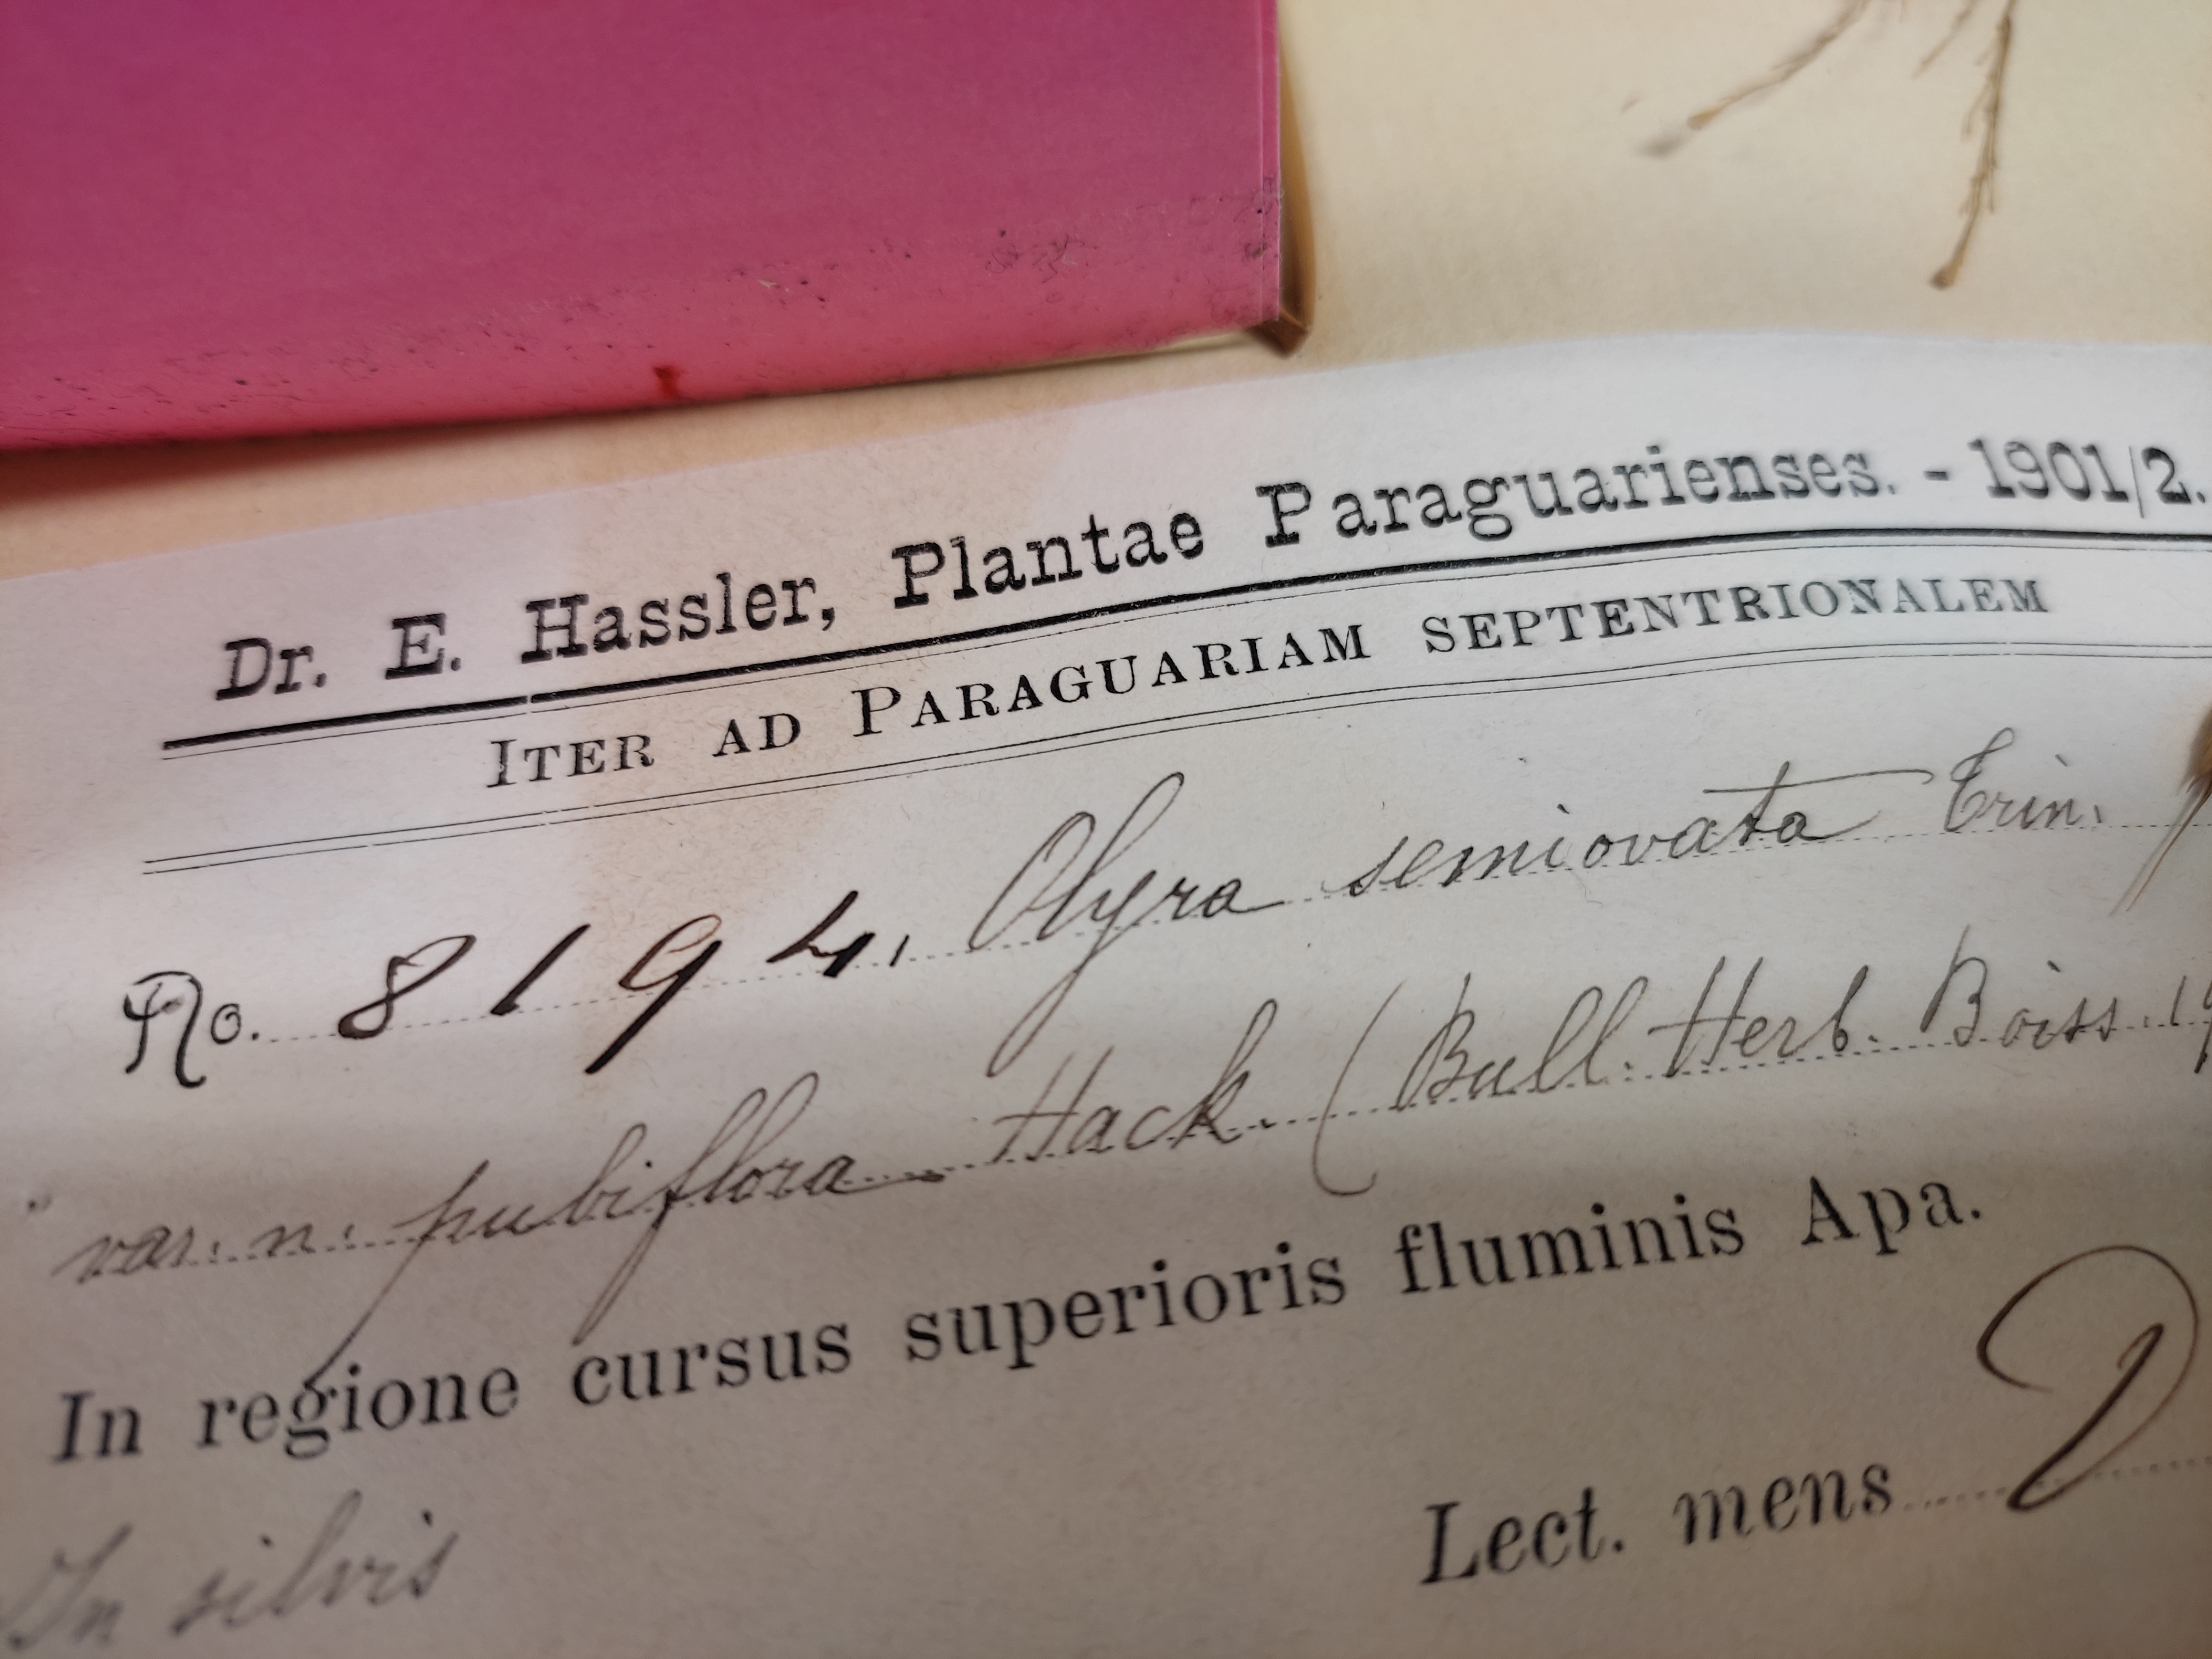 Dr. E. Hassler, Plantae Paraguarienses. - 1901/2.
ITER AD PARAGUARIAM SEPTENTRIONALEM
No. 8194. Olyra semiovata Trin.
var. n. pubiflora Hack. (Bull. Herb. Boiss. 19
In regione cursus superioris fluminis Apa.
Lect. mens D
In silvis